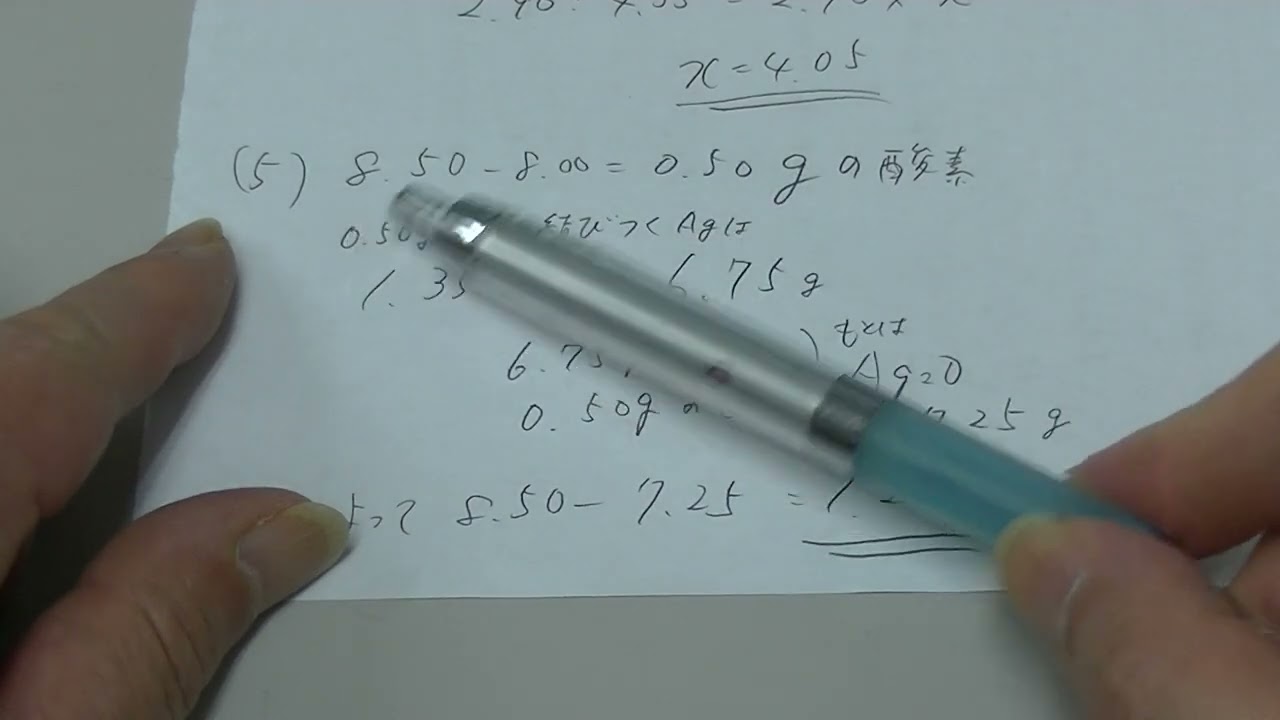 x = 4.05
(5) 8.50 - 8.00 = 0.50 g の酸素
0.50g 結びつく Agは
1.35 6.75 g
6.75 もとは
Ag2O
0.50g の 7.25 g
よって 8.50 - 7.25 = 1.